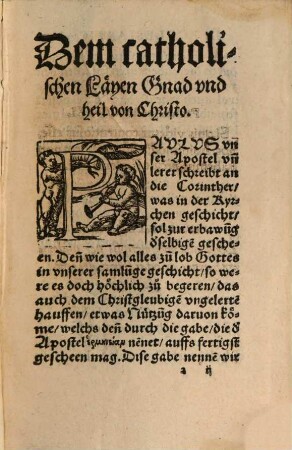 Dem catholi-
schen Läyen Gnad vnd
heil von Christo.
PAVLVS vn
ser Apostel vñ
lerer schreibt an
die Corinther/
was in der Kyr-
chen geschicht/
sol zur erbawũg
dselbigẽ gesche-
en. Deñ wie wol alles zů lob Gottes
in vnserer samlũge geschicht/ so we-
re es doch hóchlich zů begeren/ das
auch dem Christgleubigẽ vngelertẽ
hauffen/ etwas Nützũg daruon kõ-
me/ welchs deñ durch die gabe/ die d
Apostel nẽnet/ auffs fertigst
gescheen mag. Dise gabe nennẽ wir
a ij